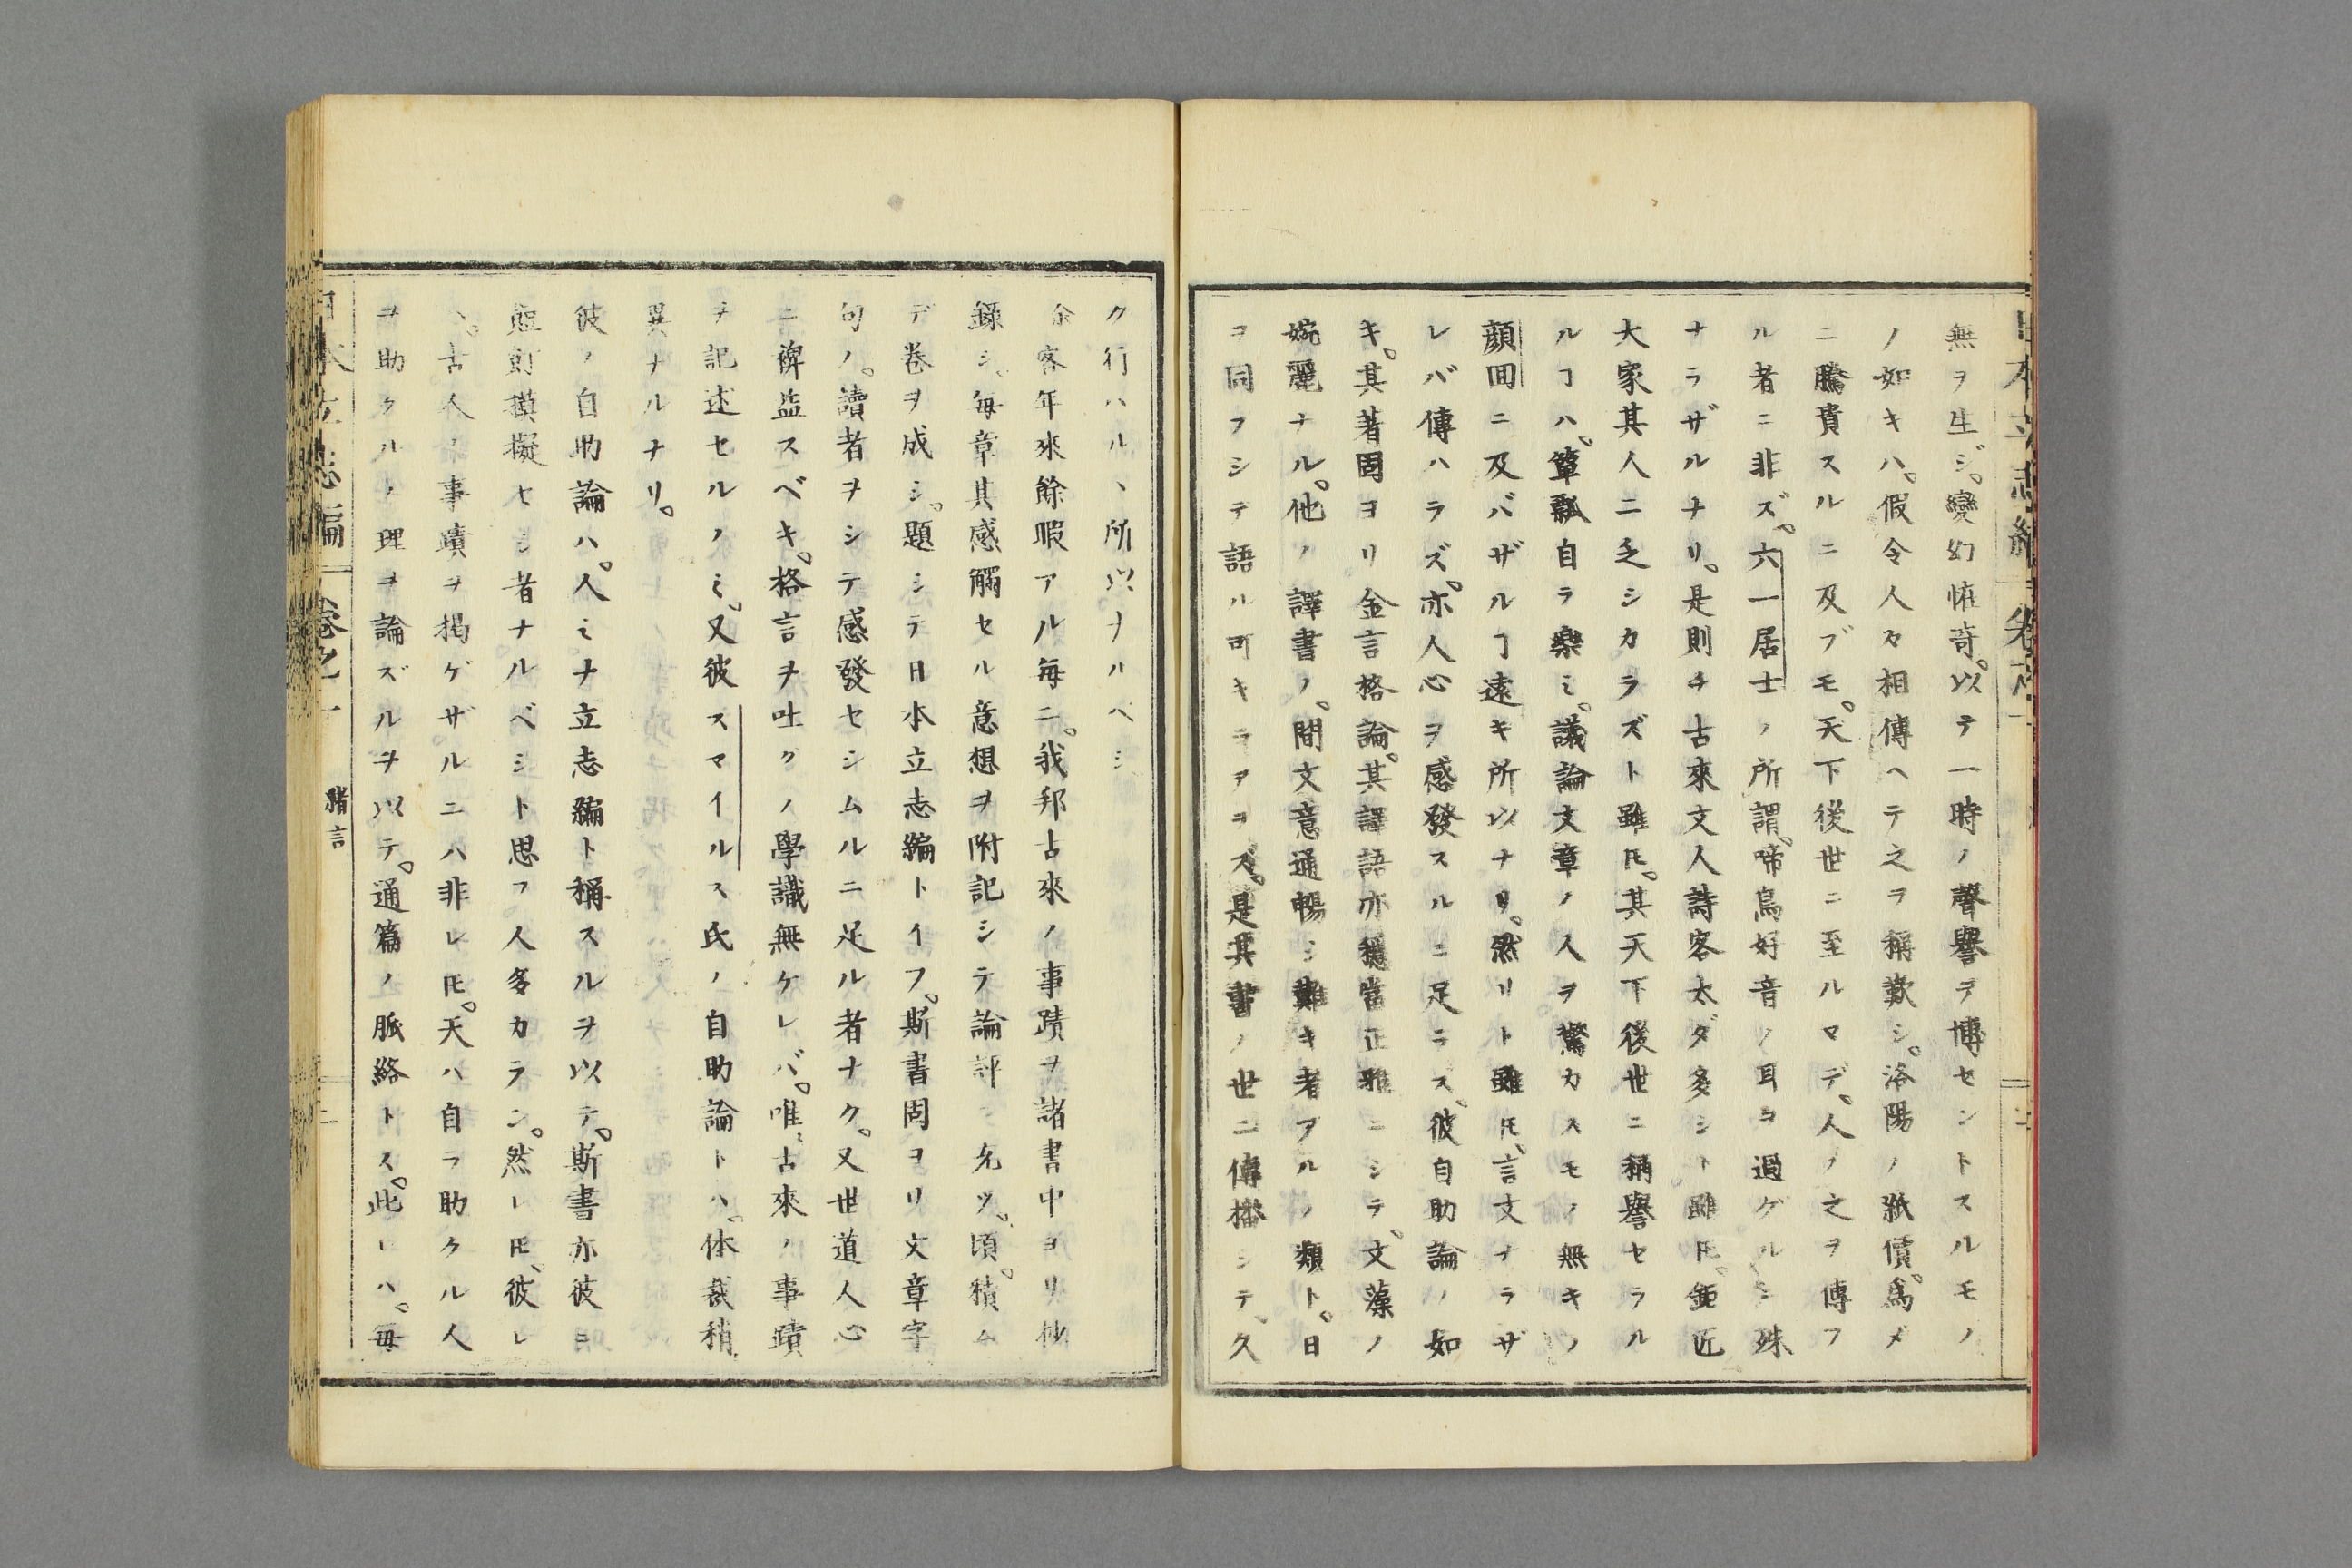 無ヲ生ジ。變幻恠竒。以テ一時ノ聲譽ヲ博セントスルモノ
ノ如キハ。假令人々相傳ヘテ之ヲ稱歎シ。洛陽ノ紙價。爲メ
ニ騰貴スルニ及ブモ。天下後世ニ至ルマデ、人ノ之ヲ傳フ
ル者ニ非ズ。六一居士ノ所謂、啼鳥好音ノ耳ヲ過グルニ殊
ナラザルナリ。是則チ古來文人詩客太ダ多シト雖𪜈。鉅匠
大家其人ニ乏シカラズト雖𪜈。其天下後世ニ稱譽セラル
ルヿハ、簞瓢自ラ樂ミ。議論文章ノ人ヲ驚カスモノ無キノ
顔回ニ及バザルヿ遠キ所以ナリ。然リト雖𪜈、言文ナラザ
レバ傳ハラズ。亦人心ヲ感發スルニ足ラス。彼自助論ノ如
キ。其著固ヨリ金言格論。其譯語亦穩當正雅ニシテ、文藻ノ
婉麗ナル。他ノ譯書ノ、間文意通暢シ難キ者アルノ類ト。日
ヲ同フシテ語ル可キラヲヨズ。是其書ノ世ニ傳播シテ、久
ク行ハル、所以ナルベシ
余客年來餘暇アル毎ニ。我邦古來ノ事蹟ヲ諸書中ヨリ抄
錄シ、毎章其感觸セル意想ヲ附記シテ論評ニ充ツ。頃。積ム
デ卷ヲ成シ。題シテ日本立志編トイフ。斯書固ヨリ文章字
句ノ。讀者ヲシテ感發セシムルニ足ル者ナク。又世道人心
ニ裨益スベキ、格言ヲ吐クノ學識無ケレバ。唯、古來ノ事蹟
ヲ記述セルノミ、又彼スマイルス氏ノ自助論トハ、体裁稍
異ナルナリ。
彼ノ自助論ハ。人ミナ立志編ト稱スルヲ以テ。斯書亦彼ヨ
リ摸擬セシ者ナルベシト思フ人多カラン。然レ𪜈、彼レ
ハ。古人ノ事蹟ヲ掲ゲザルニハ非レ𪜈。天ハ自ラ助クル人
ヲ助クルノ理ヲ論ズルヲ以テ。通篇ノ脈絡トス。此レハ。毎
日本立志編 卷之一 緖言